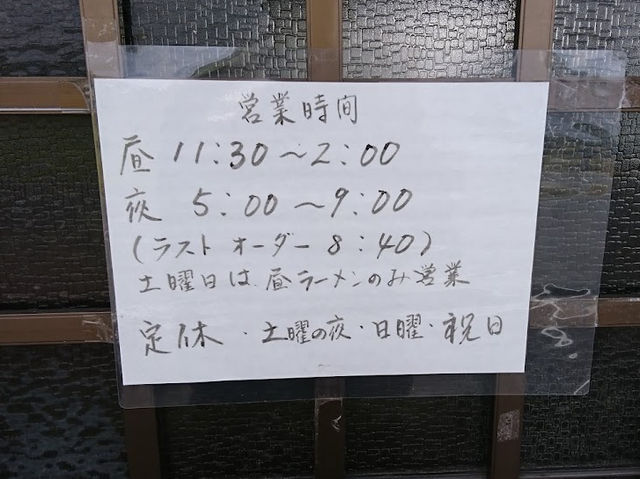 営業時間
昼 11:30～2:00
夜 5:00～9:00
(ラストオーダー 8:40)
土曜日は昼ラーメンのみ営業
定休・土曜の夜・日曜・祝日